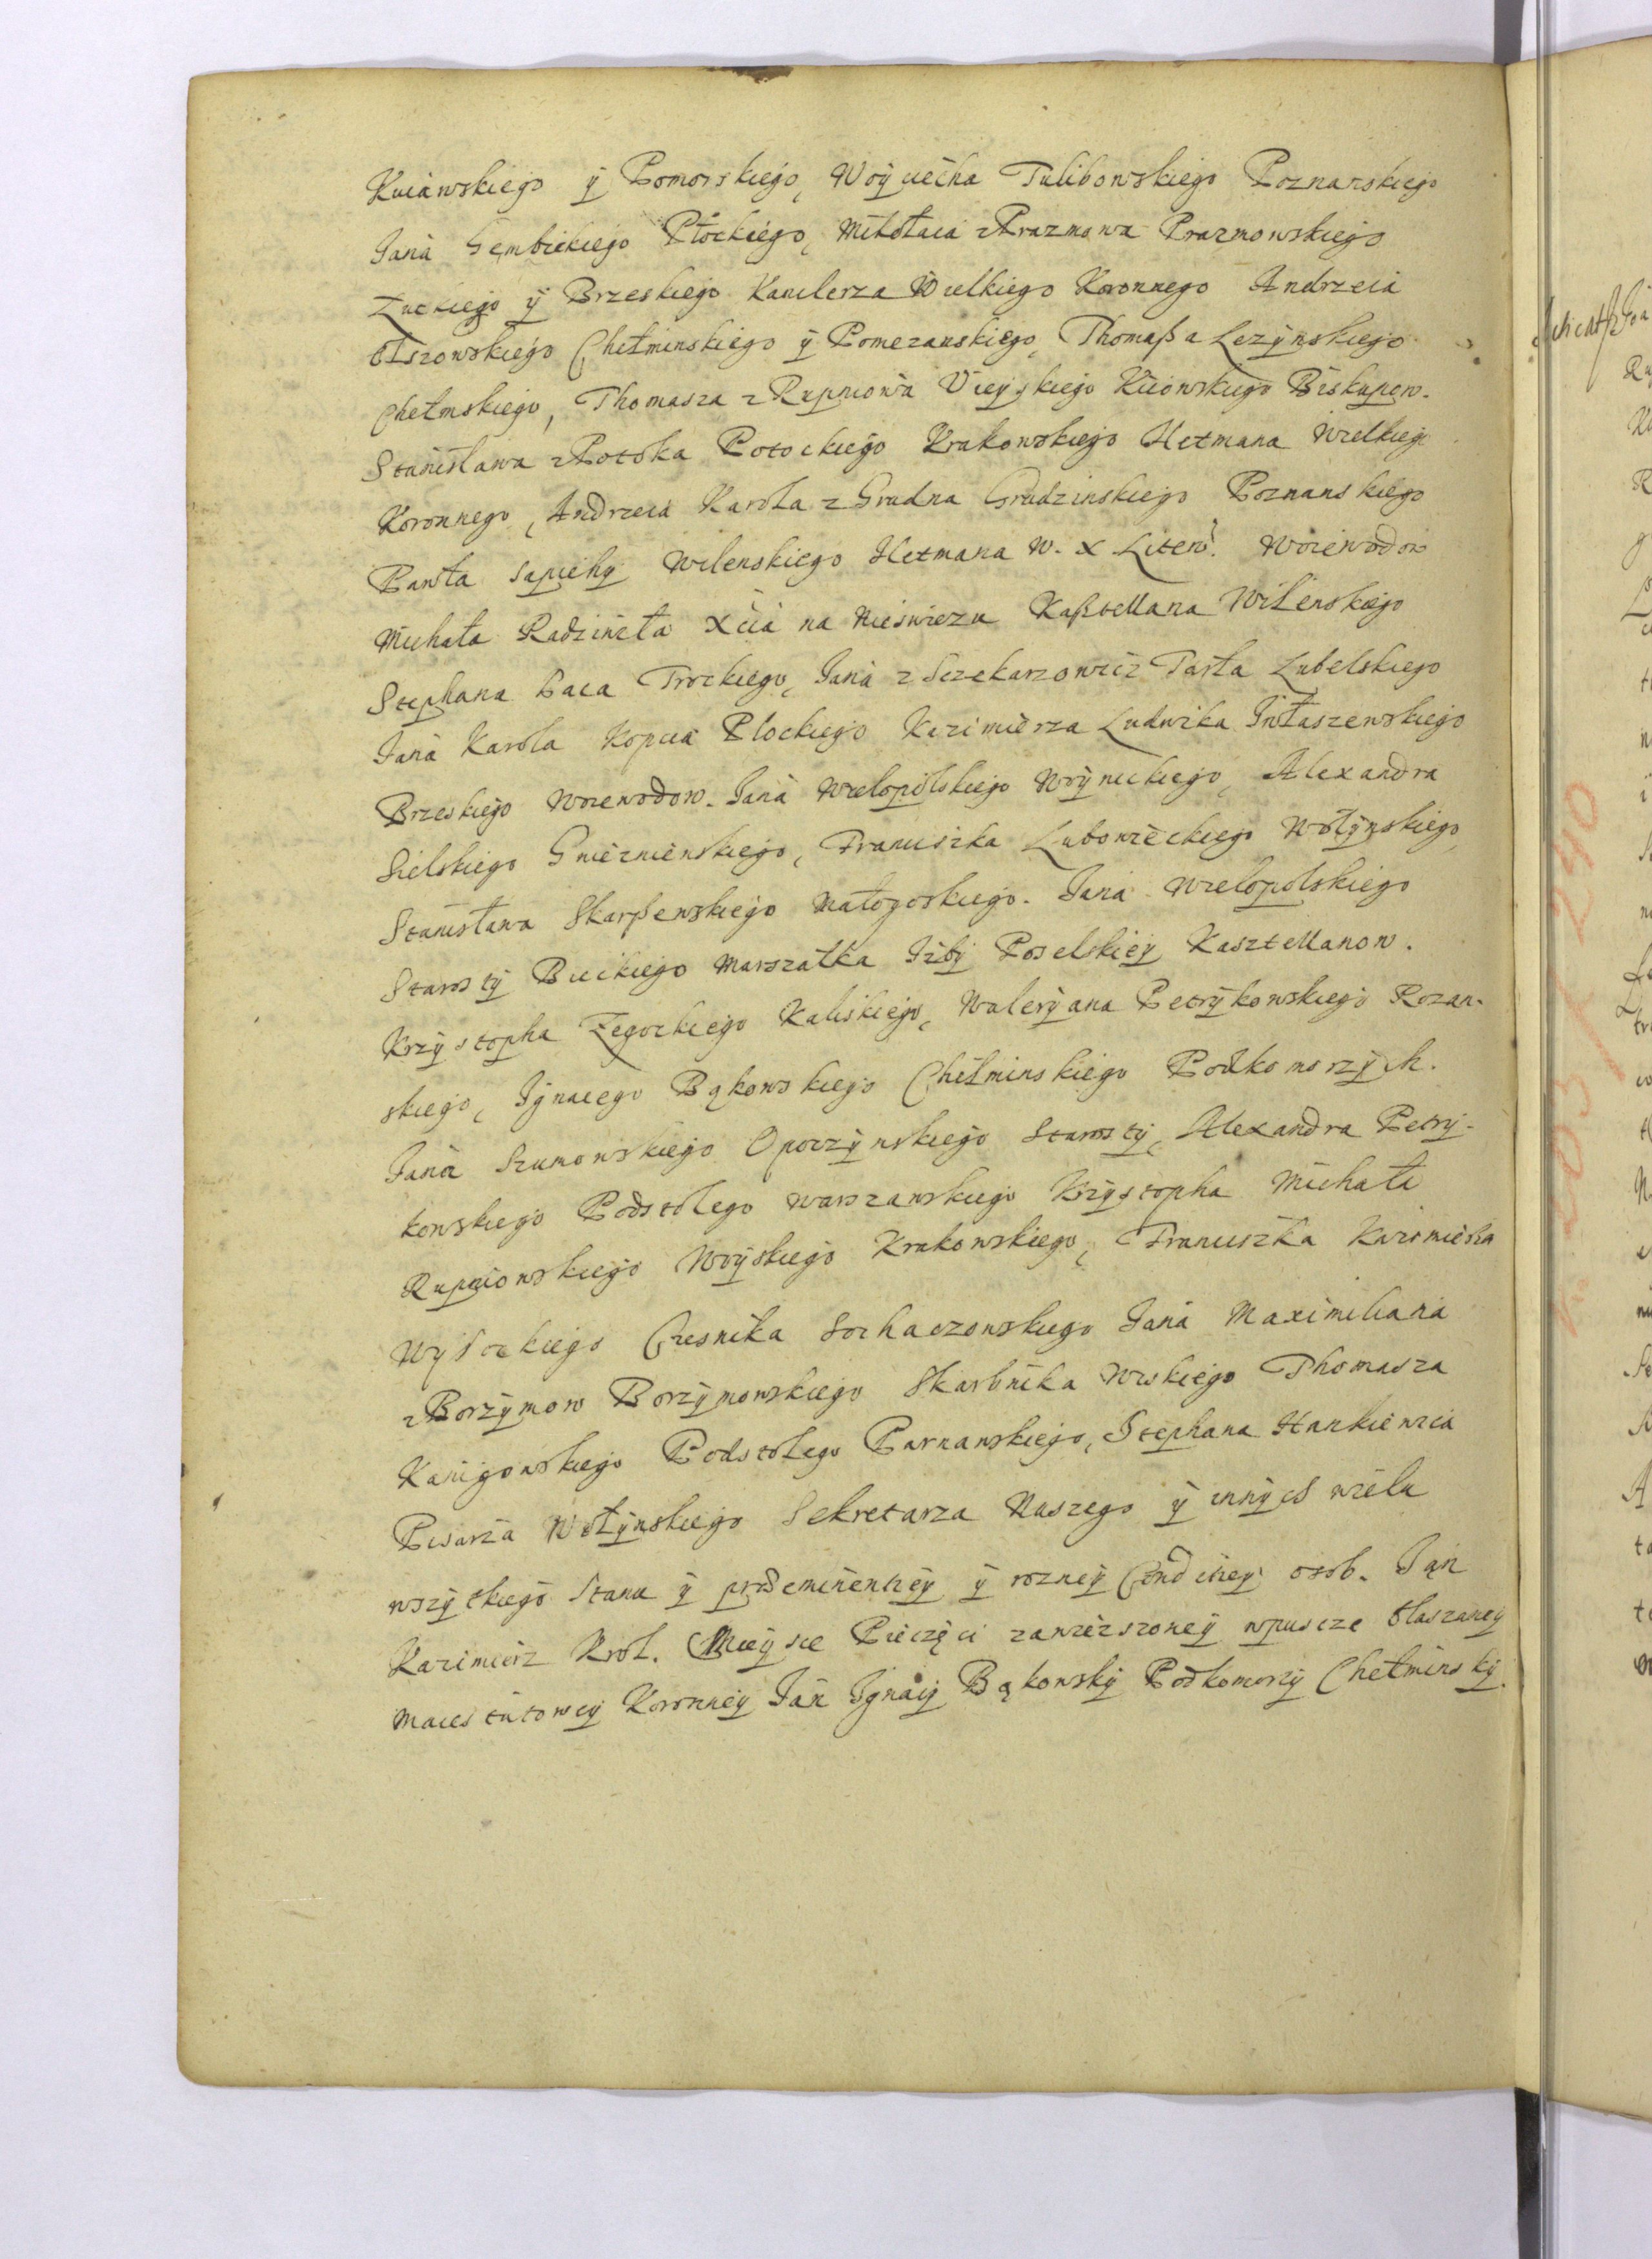 Kuiawskiego ÿ Pomorskiego, Woÿciecha Tulibowskiego Poznanskiego
Jana Gembickiego Płockiego, Mikołaia z Prazmowa Prazmowskiego
Łuckiego ÿ Brzeskiego Kanclerza Wielkiego Koronnego Andrzeia
Olszowskiego Chełminskiego ÿ Pomezanskiego, Thomaßa Lezÿnskiego
Chełmskiego, Thomasza z Rupniowa Uieÿskiego Kiiowskiego Biskupow.
Stanisława z Potoka Potockiego Krakowskiego Hetmana Wielkieg
Koronnego, Andrzeia Karola z Grudna Grudzinskiego Poznanskiego
Pawła Sapiehÿ Wilenskiego Hetmana W. X Litew. Woiewodow
Michała Radziwiła Xcia na Nieswiezu Kaßtellana Wilenskiego
Stephana Paca Trockiego, Jana z Sczekarzowicz Tarła Lubelskiego
Jana Karola Kopcia Płockiego Kazimierza Ludwika Jwłaszewskiego
Brzeskiego Woiewodow. Jana Wielopolskiego Woÿnickiego, Alexandra
Sielskiego Gniezninskiego, Franciszka Lubowieckiego Wołÿnskiego,
Stanisława Skarßewskiego Małogoskiego. Jana Wielopolskiego
Starostÿ Bieckiego Marszałka Jzbÿ Poselskieÿ Kasztellanow.
Krzÿstopha Zegockiego Kaliskiego, Walerÿana Petrÿkowskiego Rozan-
skiego, Jgnacego Bąkowskiego Chełminskiego Podkomorzÿch.
Jana Szumowskiego Opoczÿnskiego Starostÿ, Alexandra Petrÿ-
kowskiego Podstolego Warszawskiego Krzÿstopha Michała
Rupniowskiego Woÿskiego Krakowskiego, Franciszka Kazimierza
Wÿsockiego Czesnika Sochaczowskiego Jana Maximiliana
z Borzÿmow Borzÿmowskiego Skarbnika Wiskiego Thomasza
Karÿgowskiego Podstolego Parnawskiego, Stephana Hankiewicza
Pisarza Wołÿnskiego Sekretarza Naszego ÿ innÿch wielu
wszÿtkiego Stanu ÿ praeeminentieÿ ÿ rozneÿ Conditieÿ osob. Jan
Kazimierz Krol. Mieÿsce Pieczęci zawieszoneÿ wpuscze blaszaneÿ
Maiestatoweÿ Koronneÿ Jan Jgnacÿ Bąkowskÿ Podkomorzÿ Chełminskÿ.